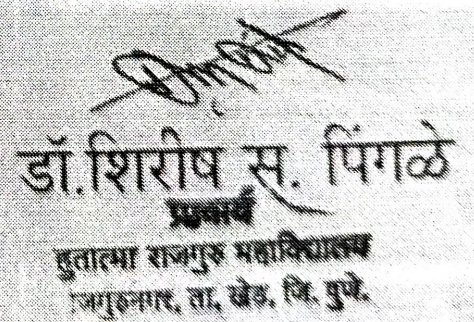 डॉ.शिरीष स. पिंगळे
प्राचार्य
हुतात्मा राजगुरु महाविद्यालय
राजगुरुनगर, ता. खेड, जि. पुणे.